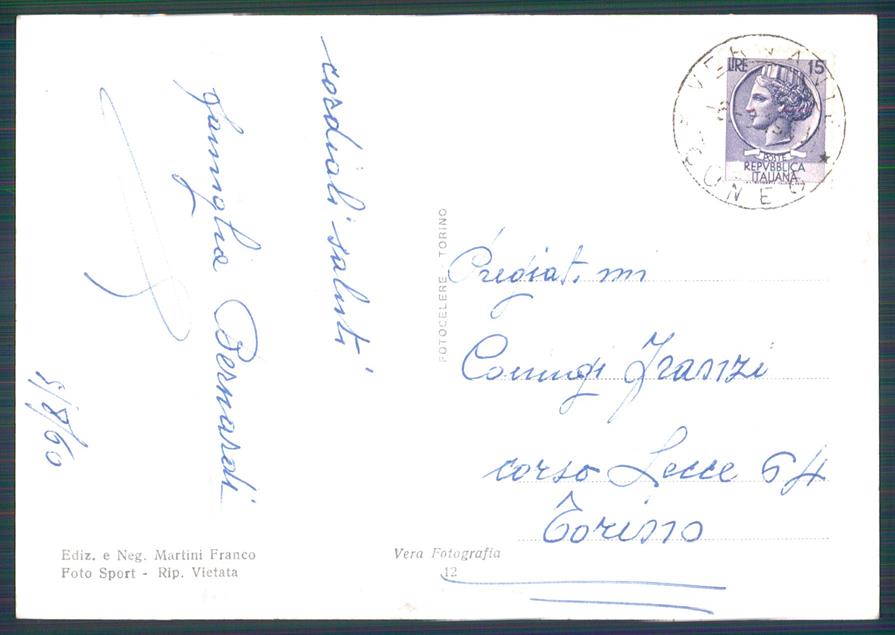 cordiali saluti
famiglia Bernardi
5/8/60
Ediz. e Neg. Martini Franco
Foto Sport - Rip. Vietata
Vera Fotografia
12
FOTOCELERE - TORINO
LIRE 15
POSTE
REPVBBLICA
ITALIANA
VERNANTE
CUNEO
Pregiat. mi
Coniugi Franzi
corso Lecce 64
Torino